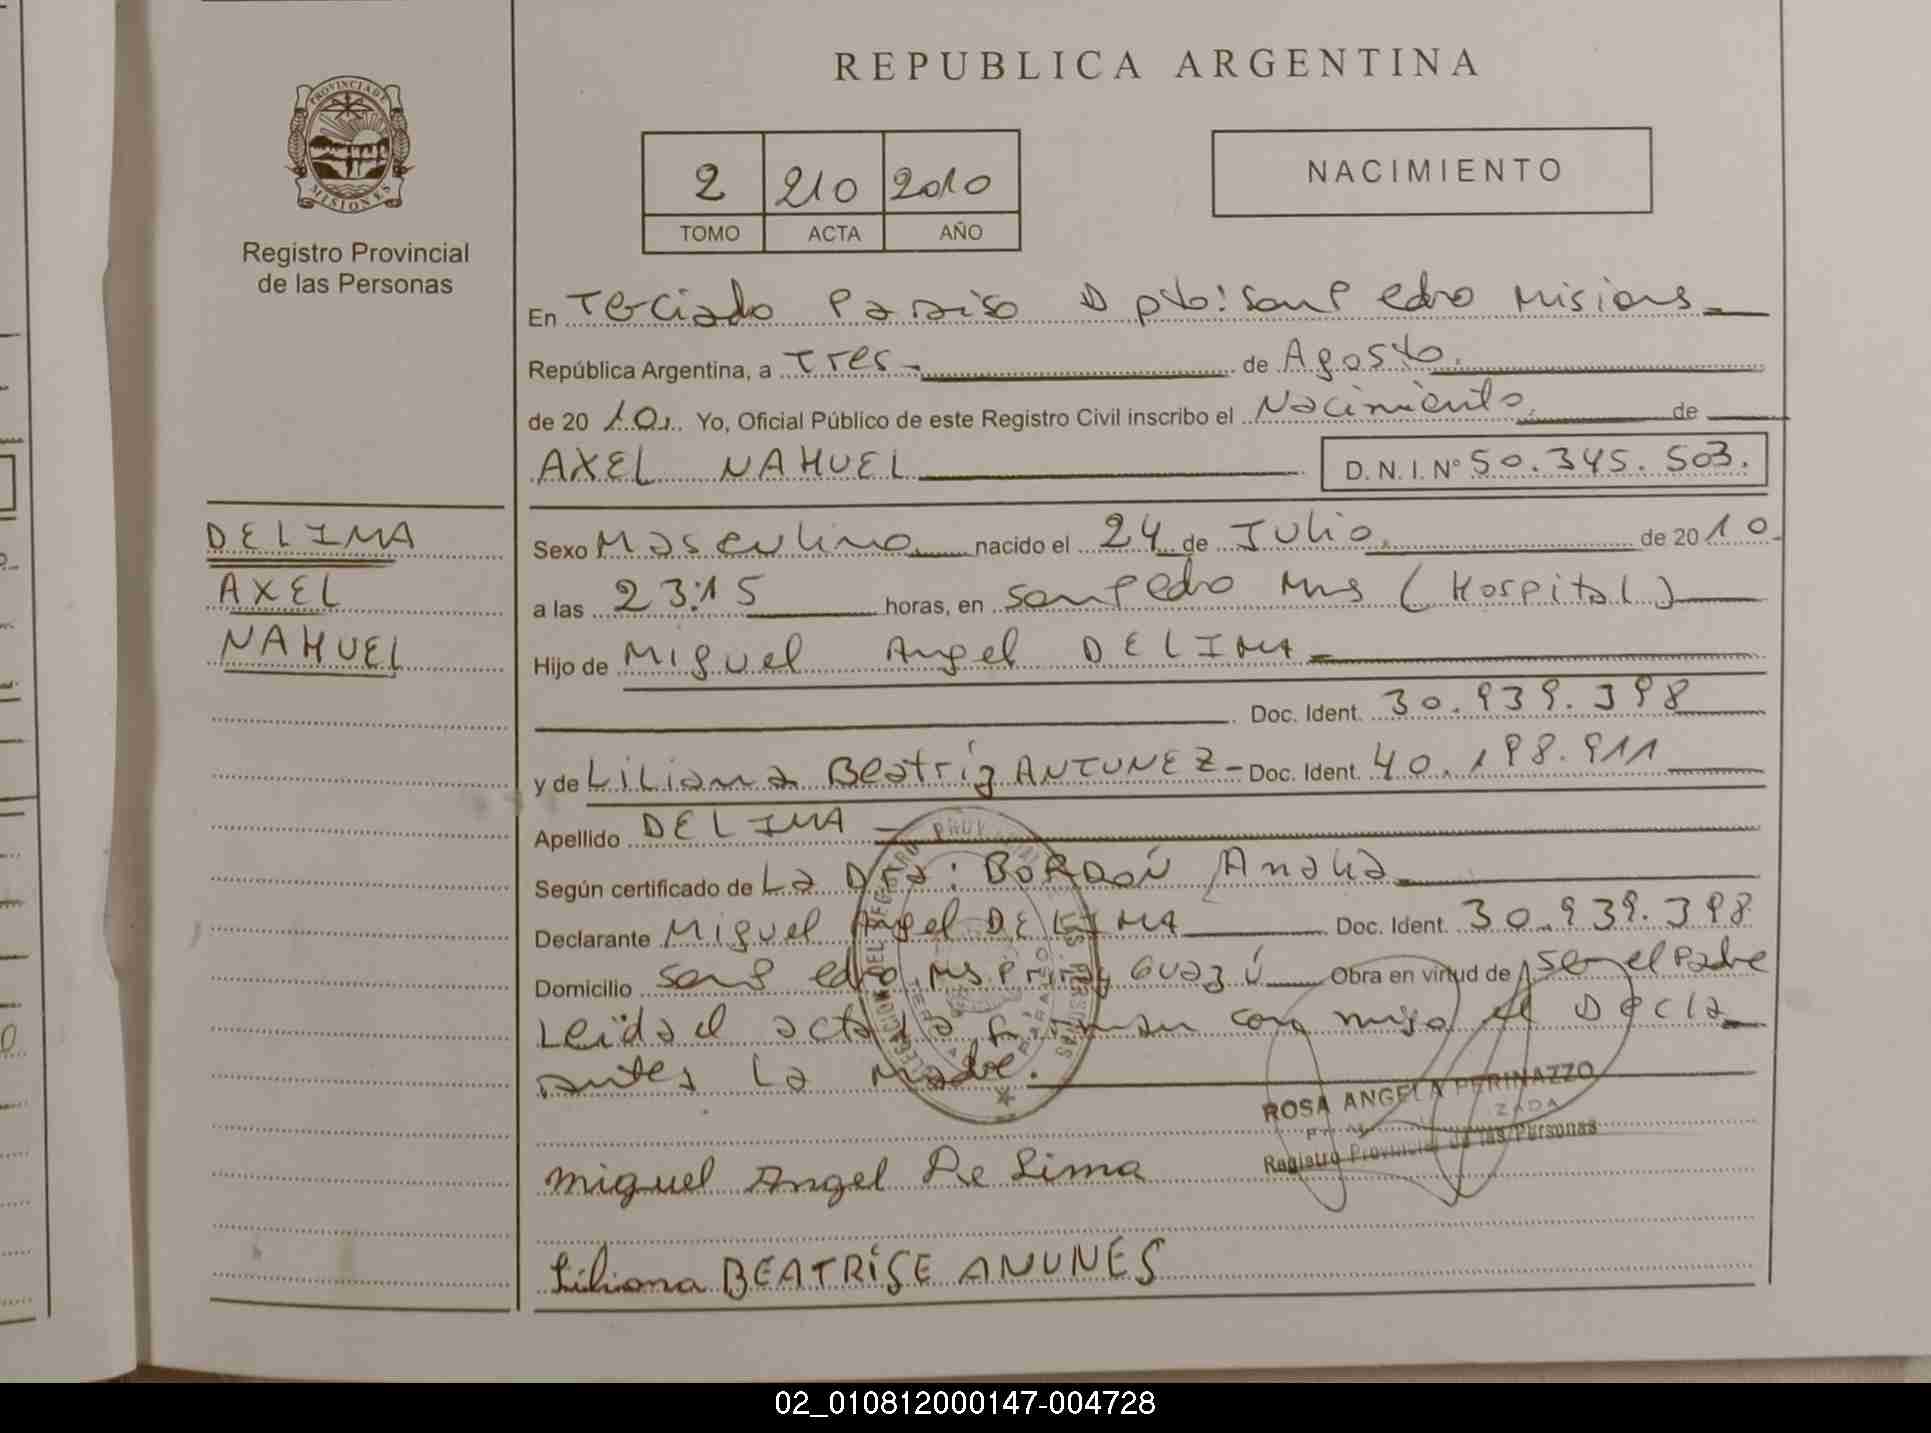 REPUBLICA ARGENTINA
PROVINCIA DE MISIONES
Registro Provincial
de las Personas
2 210 2010
TOMO ACTA AÑO
NACIMIENTO
En Terciado Paraiso Dpto: San Pedro Misions
República Argentina, a Tres de Agosto.
de 2010. Yo, Oficial Público de este Registro Civil inscribo el Nacimiento. de
AXEL NAHUEL D. N. I. N° 50.345.503.
DELIMA
AXEL
NAHUEL
Sexo Masculino nacido el 24 de Julio. de 2010
a las 23:15 horas, en San Pedro Mns (Hospital)
Hijo de Miguel Angel DELIMA
Doc. Ident. 30.939.398
y de Liliana Beatríz ANTUNEZ - Doc. Ident. 40.198.911
Apellido DELIMA
Según certificado de La DRa: BORDÓN Analia
Declarante Miguel Angel DELIMA Doc. Ident. 30.939.398
Domicilio San Pedro Ms Piray Guazú Obra en virtud de ser el Padre
Leida el acta la firman con migo el Decla
rantes La Madre.
DELEGACION DEL REGISTRO PROVINCIAL DE LAS PERSONAS
ROSA ANGELA PERINAZZO
Registro Provincial de las Personas
Miguel Angel De Lima
Liliana BEATRÍSE ANUNES
02_010812000147-004728